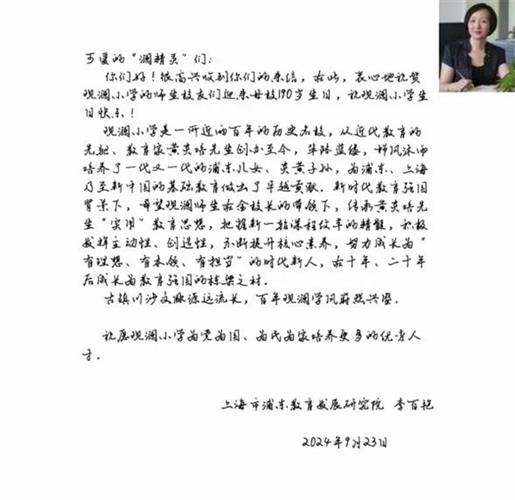 可爱的“澜精灵”们：
你们好！很高兴收到你们的来信，在此，衷心地祝贺
观澜小学的师生校友们迎来母校190岁生日，祝观澜小学生
日快乐！
观澜小学是一所近两百年的历史名校，从近代教育的
先驱、教育家黄炎培先生创办至今，筚路蓝缕，栉风沐雨
培养了一代又一代的浦东儿女、炎黄子孙，为浦东、上海
乃至新中国的基础教育做出了卓越贡献。新时代教育强国
背景下，希望观澜师生在余校长的带领下，传承黄炎培先
生“实用”教育思想，把握新一轮课程改革的精髓，积极
发挥主动性、创造性，不断提升核心素养，努力成长为“
有理想、有本领、有担当”的时代新人，在十年、二十年
后成长为教育强国的栋梁之材。
古镇川沙文脉源远流长，百年观澜学风蔚然兴盛。
祝愿观澜小学为党为国、为民为家培养更多的优秀人
才。
上海市浦东教育发展研究院 李百艳
2024年9月23日